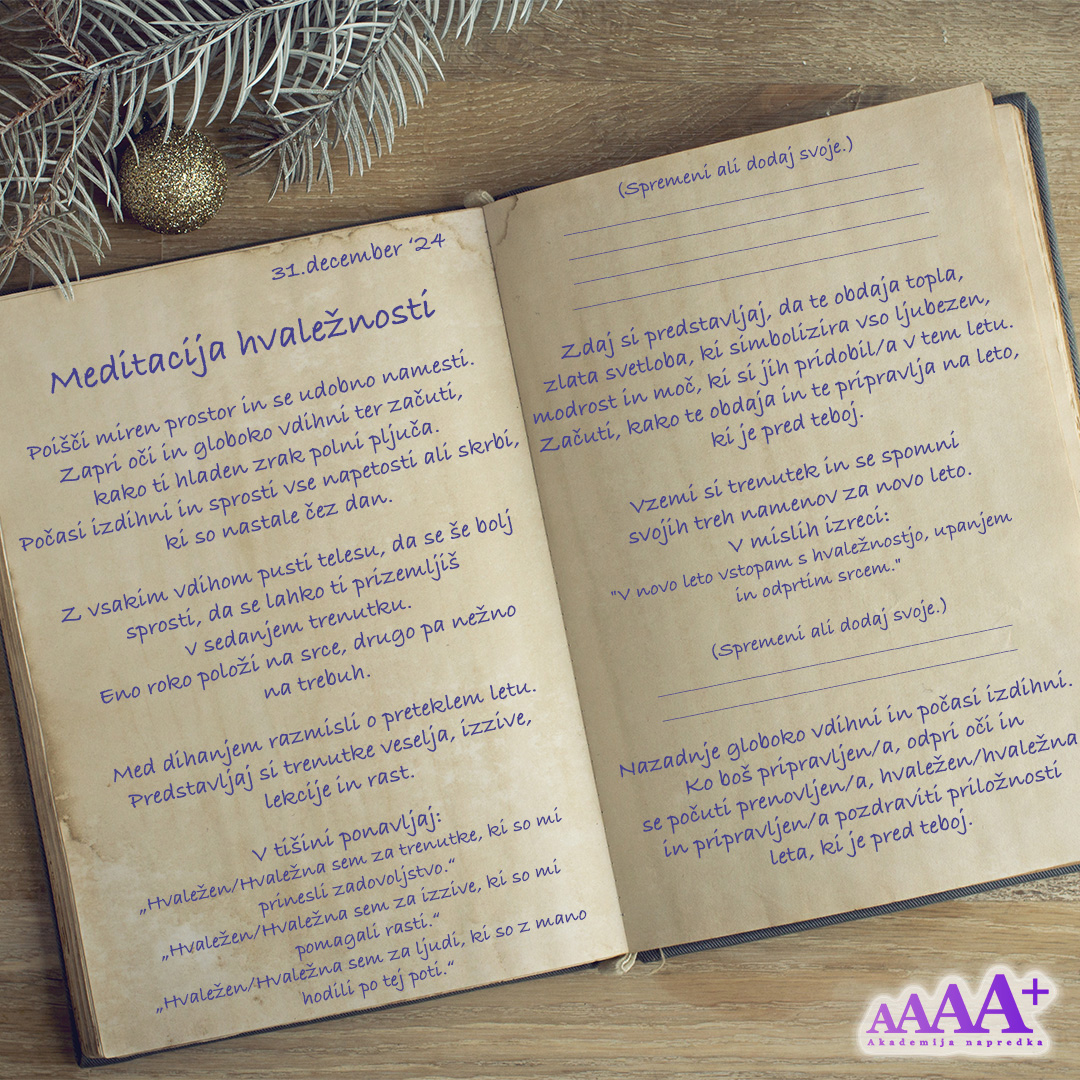 31.december ‘24
Meditacija hvaležnosti
Poišči miren prostor in se udobno namesti.
Zapri oči in globoko vdihni ter začuti,
kako ti hladen zrak polni pljuča.
Počasi izdihni in sprosti vse napetosti ali skrbi,
ki so nastale čez dan.
Z vsakim vdihom pusti telesu, da se še bolj
sprosti, da se lahko ti prizemljiš
v sedanjem trenutku.
Eno roko položi na srce, drugo pa nežno
na trebuh.
Med dihanjem razmisli o preteklem letu.
Predstavljaj si trenutke veselja, izzive,
lekcije in rast.
V tišini ponavljaj:
„Hvaležen/Hvaležna sem za trenutke, ki so mi
prinesli zadovoljstvo.“
„Hvaležen/Hvaležna sem za izzive, ki so mi
pomagali rasti.“
„Hvaležen/Hvaležna sem za ljudi, ki so z mano
hodili po tej poti.“
(Spremeni ali dodaj svoje.)
Zdaj si predstavljaj, da te obdaja topla,
zlata svetloba, ki simbolizira vso ljubezen,
modrost in moč, ki si jih pridobil/a v tem letu.
Začuti, kako te obdaja in te pripravlja na leto,
ki je pred teboj.
Vzemi si trenutek in se spomni
svojih treh namenov za novo leto.
V mislih izreci:
"V novo leto vstopam s hvaležnostjo, upanjem
in odprtim srcem."
(Spremeni ali dodaj svoje.)
Nazadnje globoko vdihni in počasi izdihni.
Ko boš pripravljen/a, odpri oči in
se počuti prenovljen/a, hvaležen/hvaležna
in pripravljen/a pozdraviti priložnosti
leta, ki je pred teboj.
AAAA+
Akademija napredka